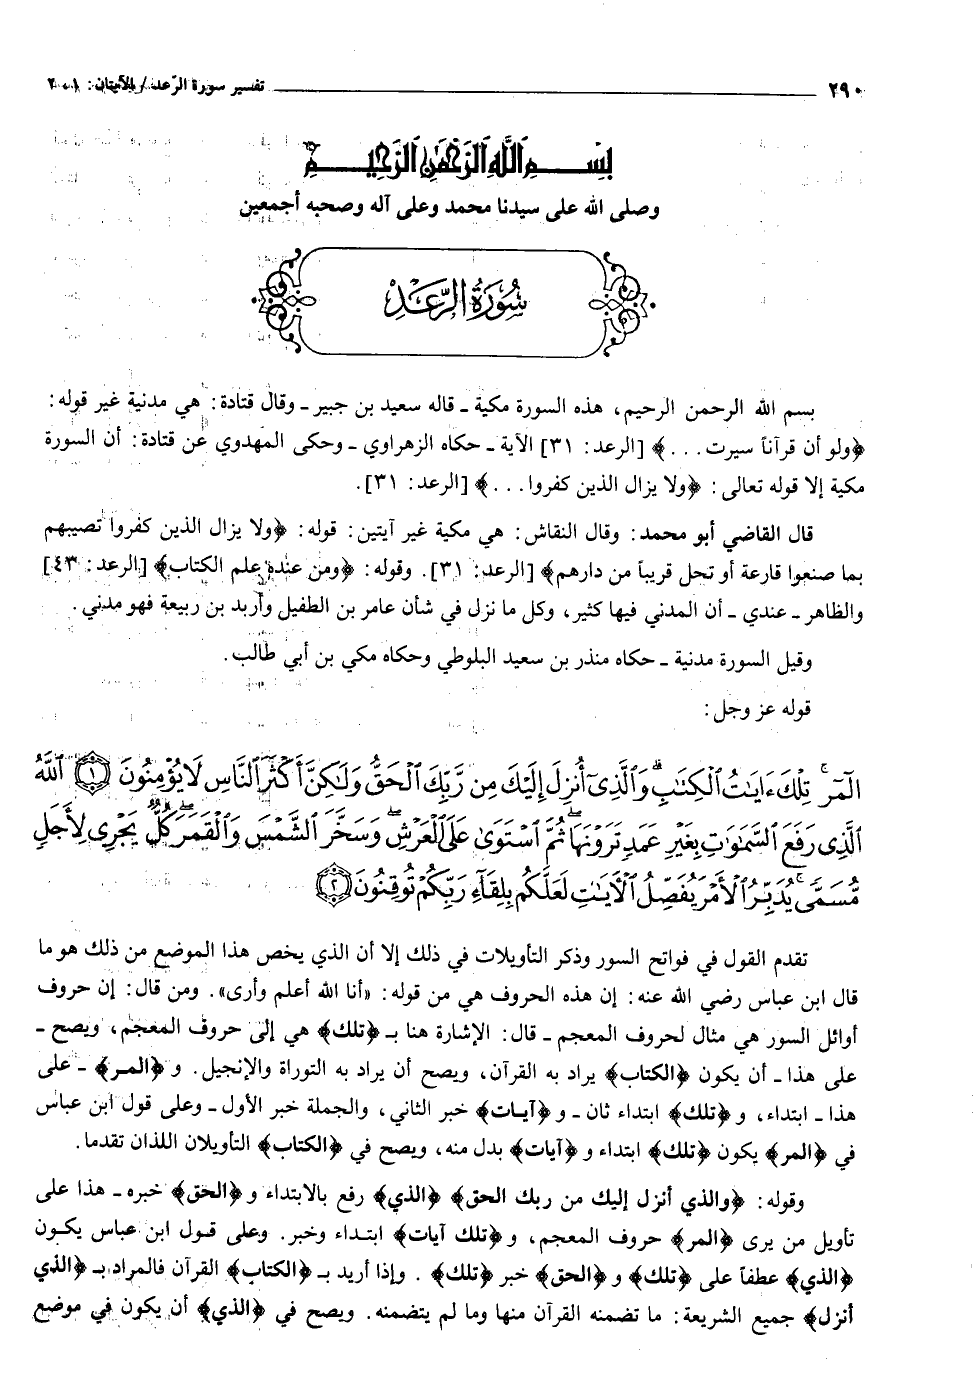 ٢٩٠ تفسير سورة الرّعد/ الآيتان: ١ ـ ٢
بِسْمِ ٱللَّهِ ٱلرَّحْمَٰنِ ٱلرَّحِيمِ
وصلى الله على سيدنا محمد وعلى آله وصحبه أجمعين
سُورَةُ الرَّعْدِ
بسم الله الرحمن الرحيم، هذه السورة مكية ـ قاله سعيد بن جبير ـ وقال قتادة: هي مدنية غير قوله:
﴿ولو أن قرآناً سيرت...﴾ [الرعد: ٣١] الآية ـ حكاه الزهراوي ـ وحكى المهدوي عن قتادة: أن السورة
مكية إلا قوله تعالى: ﴿ولا يزال الذين كفروا...﴾ [الرعد: ٣١].
قال القاضي أبو محمد: وقال النقاش: هي مكية غير آيتين: قوله: ﴿ولا يزال الذين كفروا تصيبهم
بما صنعوا قارعة أو تحل قريباً من دارهم﴾ [الرعد: ٣١]. وقوله: ﴿ومن عنده علم الكتاب﴾ [الرعد: ٤٣]
والظاهر ـ عندي ـ أن المدني فيها كثير، وكل ما نزل في شأن عامر بن الطفيل وأربد بن ربيعة فهو مدني.
وقيل السورة مدنية ـ حكاه منذر بن سعيد البلوطي وحكاه مكي بن أبي طالب.
قوله عز وجل:
الٓمٓرۚ تِلْكَ ءَايَٰتُ ٱلْكِتَٰبِۗ وَٱلَّذِىٓ أُنزِلَ إِلَيْكَ مِن رَّبِّكَ ٱلْحَقُّ وَلَٰكِنَّ أَكْثَرَ ٱلنَّاسِ لَا يُؤْمِنُونَ ﴿١﴾ ٱللَّهُ
ٱلَّذِى رَفَعَ ٱلسَّمَٰوَٰتِ بِغَيْرِ عَمَدٍ تَرَوْنَهَاۖ ثُمَّ ٱسْتَوَىٰ عَلَى ٱلْعَرْشِۖ وَسَخَّرَ ٱلشَّمْسَ وَٱلْقَمَرَۖ كُلٌّ يَجْرِى لِأَجَلٍ
مُّسَمًّىۚ يُدَبِّرُ ٱلْأَمْرَ يُفَصِّلُ ٱلْءَايَٰتِ لَعَلَّكُم بِلِقَآءِ رَبِّكُمْ تُوقِنُونَ ﴿٢﴾
تقدم القول في فواتح السور وذكر التأويلات في ذلك إلا أن الذي يخص هذا الموضع من ذلك هو ما
قال ابن عباس رضي الله عنه: إن هذه الحروف هي من قوله: «أنا الله أعلم وأرى». ومن قال: إن حروف
أوائل السور هي مثال لحروف المعجم ـ قال: الإشارة هنا بـ ﴿تلك﴾ هي إلى حروف المعجم، ويصح ـ
على هذا ـ أن يكون ﴿الكتاب﴾ يراد به القرآن، ويصح أن يراد به التوراة والإنجيل. و ﴿المـر﴾ ـ على
هذا ـ ابتداء، و ﴿تلك﴾ ابتداء ثان ـ و ﴿آيـات﴾ خبر الثاني، والجملة خبر الأول ـ وعلى قول ابن عباس
في ﴿المر﴾ يكون ﴿تلك﴾ ابتداء و ﴿آيات﴾ بدل منه، ويصح في ﴿الكتاب﴾ التأويلان اللذان تقدما.
وقوله: ﴿والذي أنزل إليك من ربك الحق﴾ ﴿الذي﴾ رفع بالابتداء و ﴿الحق﴾ خبره ـ هذا على
تأويل من يرى ﴿المر﴾ حروف المعجم، و ﴿تلك آيات﴾ ابتـداء وخبر. وعلى قـول ابن عباس يكـون
﴿الذي﴾ عطفاً على ﴿تلك﴾ و ﴿الحق﴾ خبر ﴿تلك﴾. وإذا أريد بـ ﴿الكتاب﴾ القرآن فالمراد بـ ﴿الذي
أنزل﴾ جميع الشريعة: ما تضمنه القرآن منها وما لم يتضمنه. ويصح في ﴿الذي﴾ أن يكون في موضع